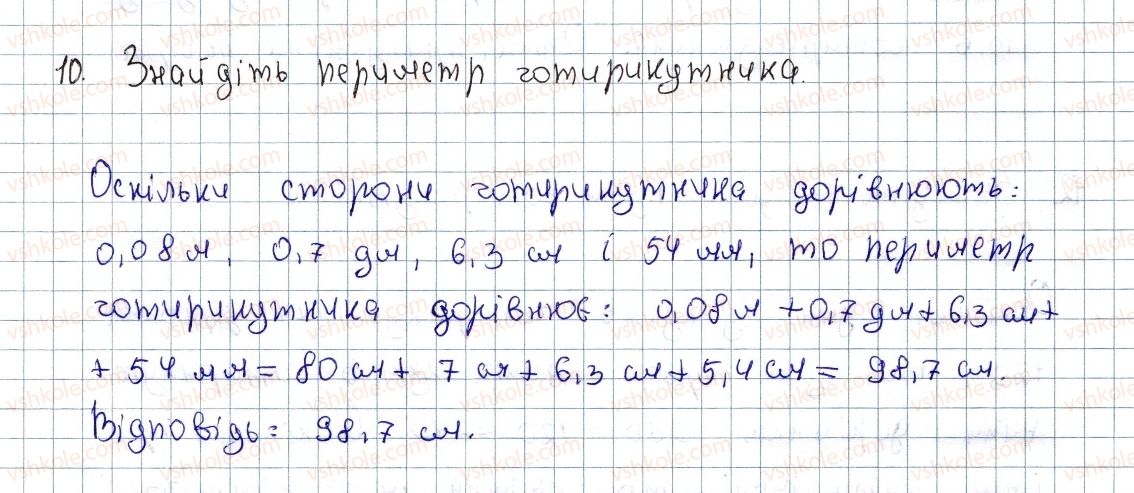 10. Знайдіть периметр чотирикутника.
Оскільки сторони чотирикутника дорівнюють:
0,08 м, 0,7 дм, 6,3 см і 54 мм, то периметр
чотирикутника дорівнює: 0,08 м + 0,7 дм + 6,3 см +
+ 54 мм = 80 см + 7 см + 6,3 см + 5,4 см = 98,7 см.
Відповідь: 98,7 см.